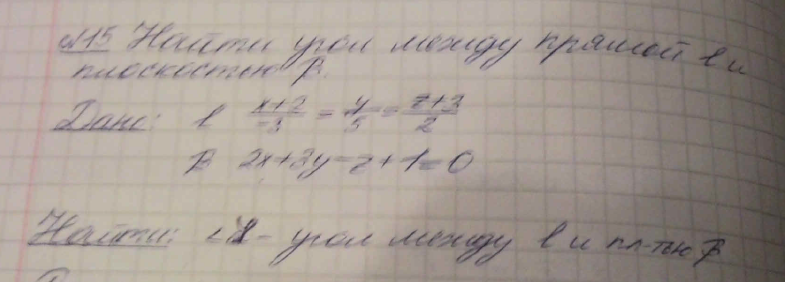 №15 Найти угол между прямой l и
плоскостью β.
Дано: l (x+2)/(-3) = y/5 = (z+3)/2
β 2x+3y-z+1=0
Найти: ∠ - угол между l и пл-тью β